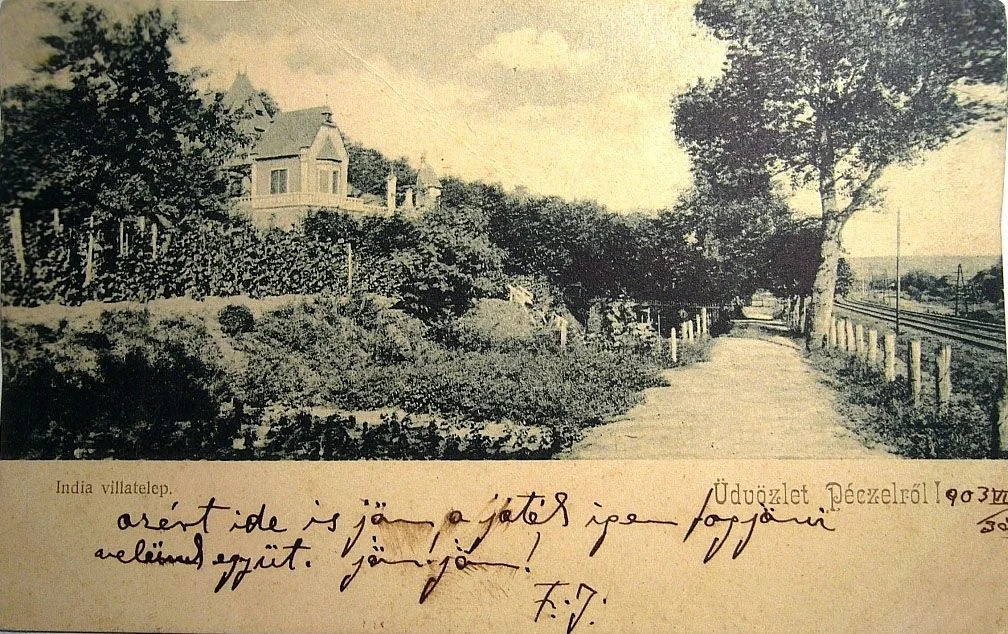 India villatelep.
Üdvözlet Péczelről! 903 VI/30
azért ide is jön a játék igen fog jönni
velünk együt. jön jön!
F. J.